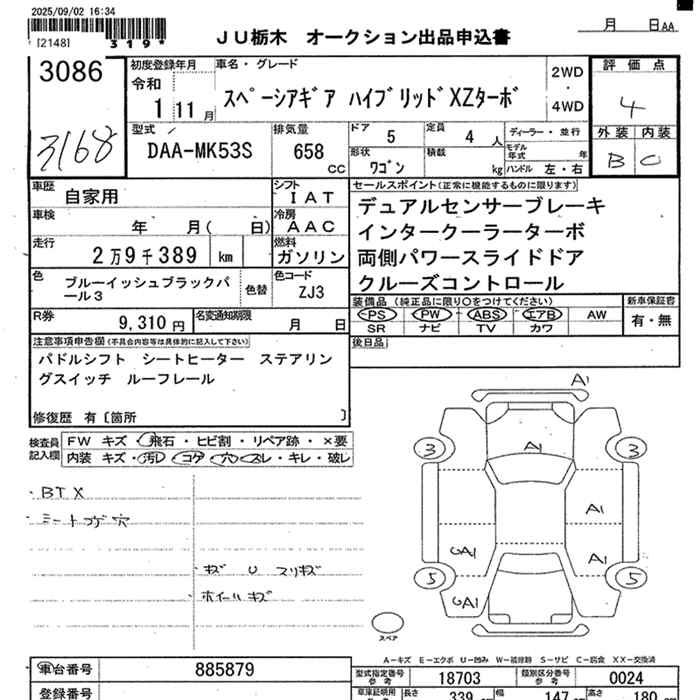 2025/09/02 16:34
[2148]
319*
JU栃木 オークション出品申込書
月 日AA
3086
3168
初度登録年月
令和
1 11月
車名・グレード
スペーシアギア ハイブリッドXZターボ
2WD
・
4WD
評価点
4
外装 内装
B C
型式
DAA-MK53S
排気量
658
cc
ドア
5
定員
4 人
ディーラー・並行
形状
ワゴン
積載
kg
モデル年式
年
ハンドル 左・右
車歴
自家用
シフト
IAT
セールスポイント(正常に機能するものに限ります)
デュアルセンサーブレーキ
インタークーラーターボ
両側パワースライドドア
クルーズコントロール
車検
年 月( 日)
冷房
AAC
走行
2万9千389 km
燃料
ガソリン
色
ブルーイッシュブラックパ
ール3
色替
色コード
ZJ3
装備品(純正品に限り○をつけてください)
PS PW ABS エアB AW
SR ナビ TV カワ
新車保証書
有・無
R券
9,310円
名変通知期限
月 日
後日品
注意事項申告欄(不具合内容等は具体的に記入して下さい)
パドルシフト シートヒーター ステアリン
グスイッチ ルーフレール
修復歴 有〔箇所 〕
検査員
記入欄
FW キズ・飛石・ヒビ割・リペア跡・×要
内装 キズ・汚レ・コゲ・穴・スレ・キレ・破レ
BTX
シートコゲ穴
キズ U スリキズ
ホイールキズ
A1
A1
3
3
A1
A1
GA1
5
5
GA1
スペア
A-キズ E-エクボ U-凹み W-補修跡 S-サビ C-腐食 XX-交換済
車台番号
885879
登録番号
型式指定番号
参考
18703
類別区分番号
参考
0024
車庫証明用
長さ
339
幅
147
高さ
180